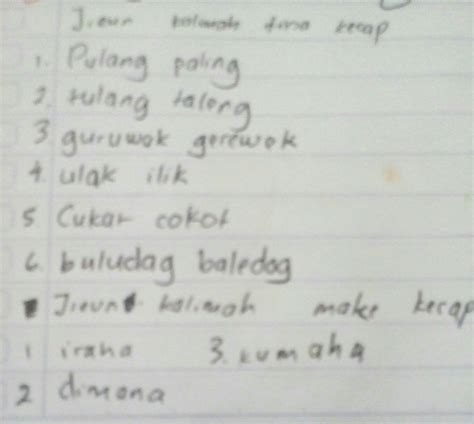 Jieun kalimah tina kecap
1. Pulang paling
2. tulang talong
3 guruwok gorewok
4. ulak ilik
5 Cukat cokot
6. buludag baledog
Jieun kalimah make kecap
1 iraha 3. kumaha
2 dimana